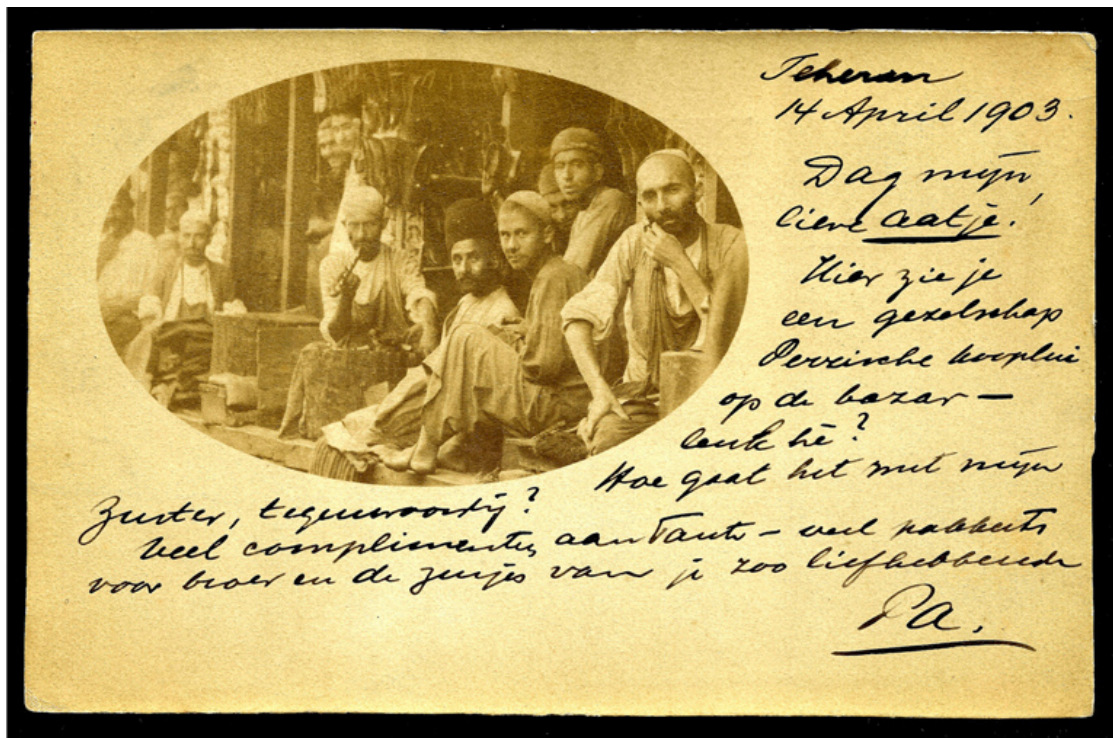 Teheran
14 April 1903.
Dag mijn
lieve aatje!
Hier zie je
een gezelschap
Perzische kooplui
op de bazar —
leuk hè?
Hoe gaat het met mijn
Zuster, tegenwoordig?
Veel complimenten aan Tante – veel pakkerts
voor broer en de zusjes van je zoo liefhebbende
Pa.